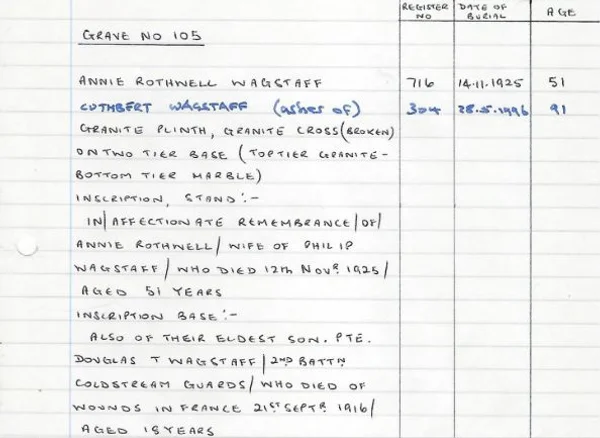 REGISTER NO DATE OF BURIAL AGE
GRAVE NO 105
ANNIE ROTHWELL WAGSTAFF 716 14.11.1925 51
CUTHBERT WAGSTAFF (ashes of) 304 28.5.1996 91
GRANITE PLINTH, GRANITE CROSS (BROKEN)
ON TWO TIER BASE (TOP TIER GRANITE-
BOTTOM TIER MARBLE)
INSCRIPTION, STAND:-
IN/AFFECTIONATE REMEMBRANCE/OF/
ANNIE ROTHWELL/ WIFE OF PHILIP
WAGSTAFF/ WHO DIED 12th NOVR 1925/
AGED 51 YEARS
INSCRIPTION BASE:-
ALSO OF THEIR ELDEST SON. PTE.
DOUGLAS T WAGSTAFF/ 2ND BATTN
COLDSTREAM GUARDS/ WHO DIED OF
WOUNDS IN FRANCE 21ST SEPTR 1916/
AGED 18 YEARS